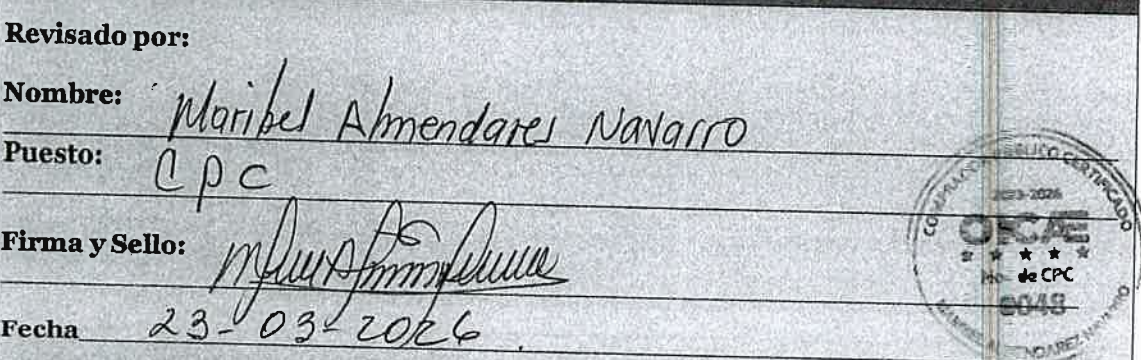 Revisado por:
Nombre: Maribel Almendares Navarro
Puesto: CPC
Firma y Sello:
Fecha 23-03-2026
COMPRADOR PUBLICO CERTIFICADO
2023-2026
ONCAE
No. de CPC
0048